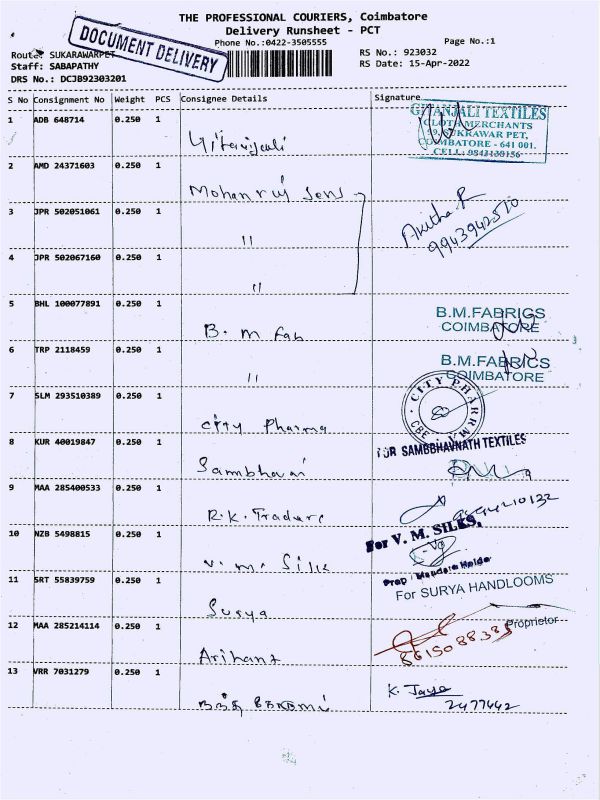 THE PROFESSIONAL COURIERS, Coimbatore
Delivery Runsheet - PCT
Phone No.:0422-3505555
Page No.:1
DOCUMENT DELIVERY
Route: SUKARAWARPET
RS No.: 923032
Staff: SABAPATHY
RS Date: 15-Apr-2022
DRS No.: DCJB92303201
S No Consignment No Weight PCS Consignee Details Signature
1 ADB 648714 0.250 1
GITANJALI TEXTILES
CLOTH MERCHANTS
99, SUKRAWAR PET,
COIMBATORE - 641 001.
CELL: 9843130156
Gitanjali
2 AMD 24371603 0.250 1
Mohanruj Sons
3 JPR 502051061 0.250 1
"
Akitha R
9943942510
4 JPR 502067160 0.250 1
"
5 BHL 100077891 0.250 1
B.M fab
B.M.FABRICS
COIMBATORE
6 TRP 2118459 0.250 1
"
B.M.FABRICS
COIMBATORE
7 SLM 293510389 0.250 1
City Pharma
CITY PHARMA
CBE
8 KUR 40019847 0.250 1
FOR SAMBBHAVNATH TEXTILES
Sambhavai
9 MAA 285400533 0.250 1
R.K. Traders
10 NZB 5498815 0.250 1
For V. M. SILKS,
V. M. Silk
11 SRT 55839759 0.250 1
For SURYA HANDLOOMS
Surya
Proprietor
12 MAA 285214114 0.250 1
Arihant
8615088385
13 VRR 7031279 0.250 1
K. Jaya
2477442